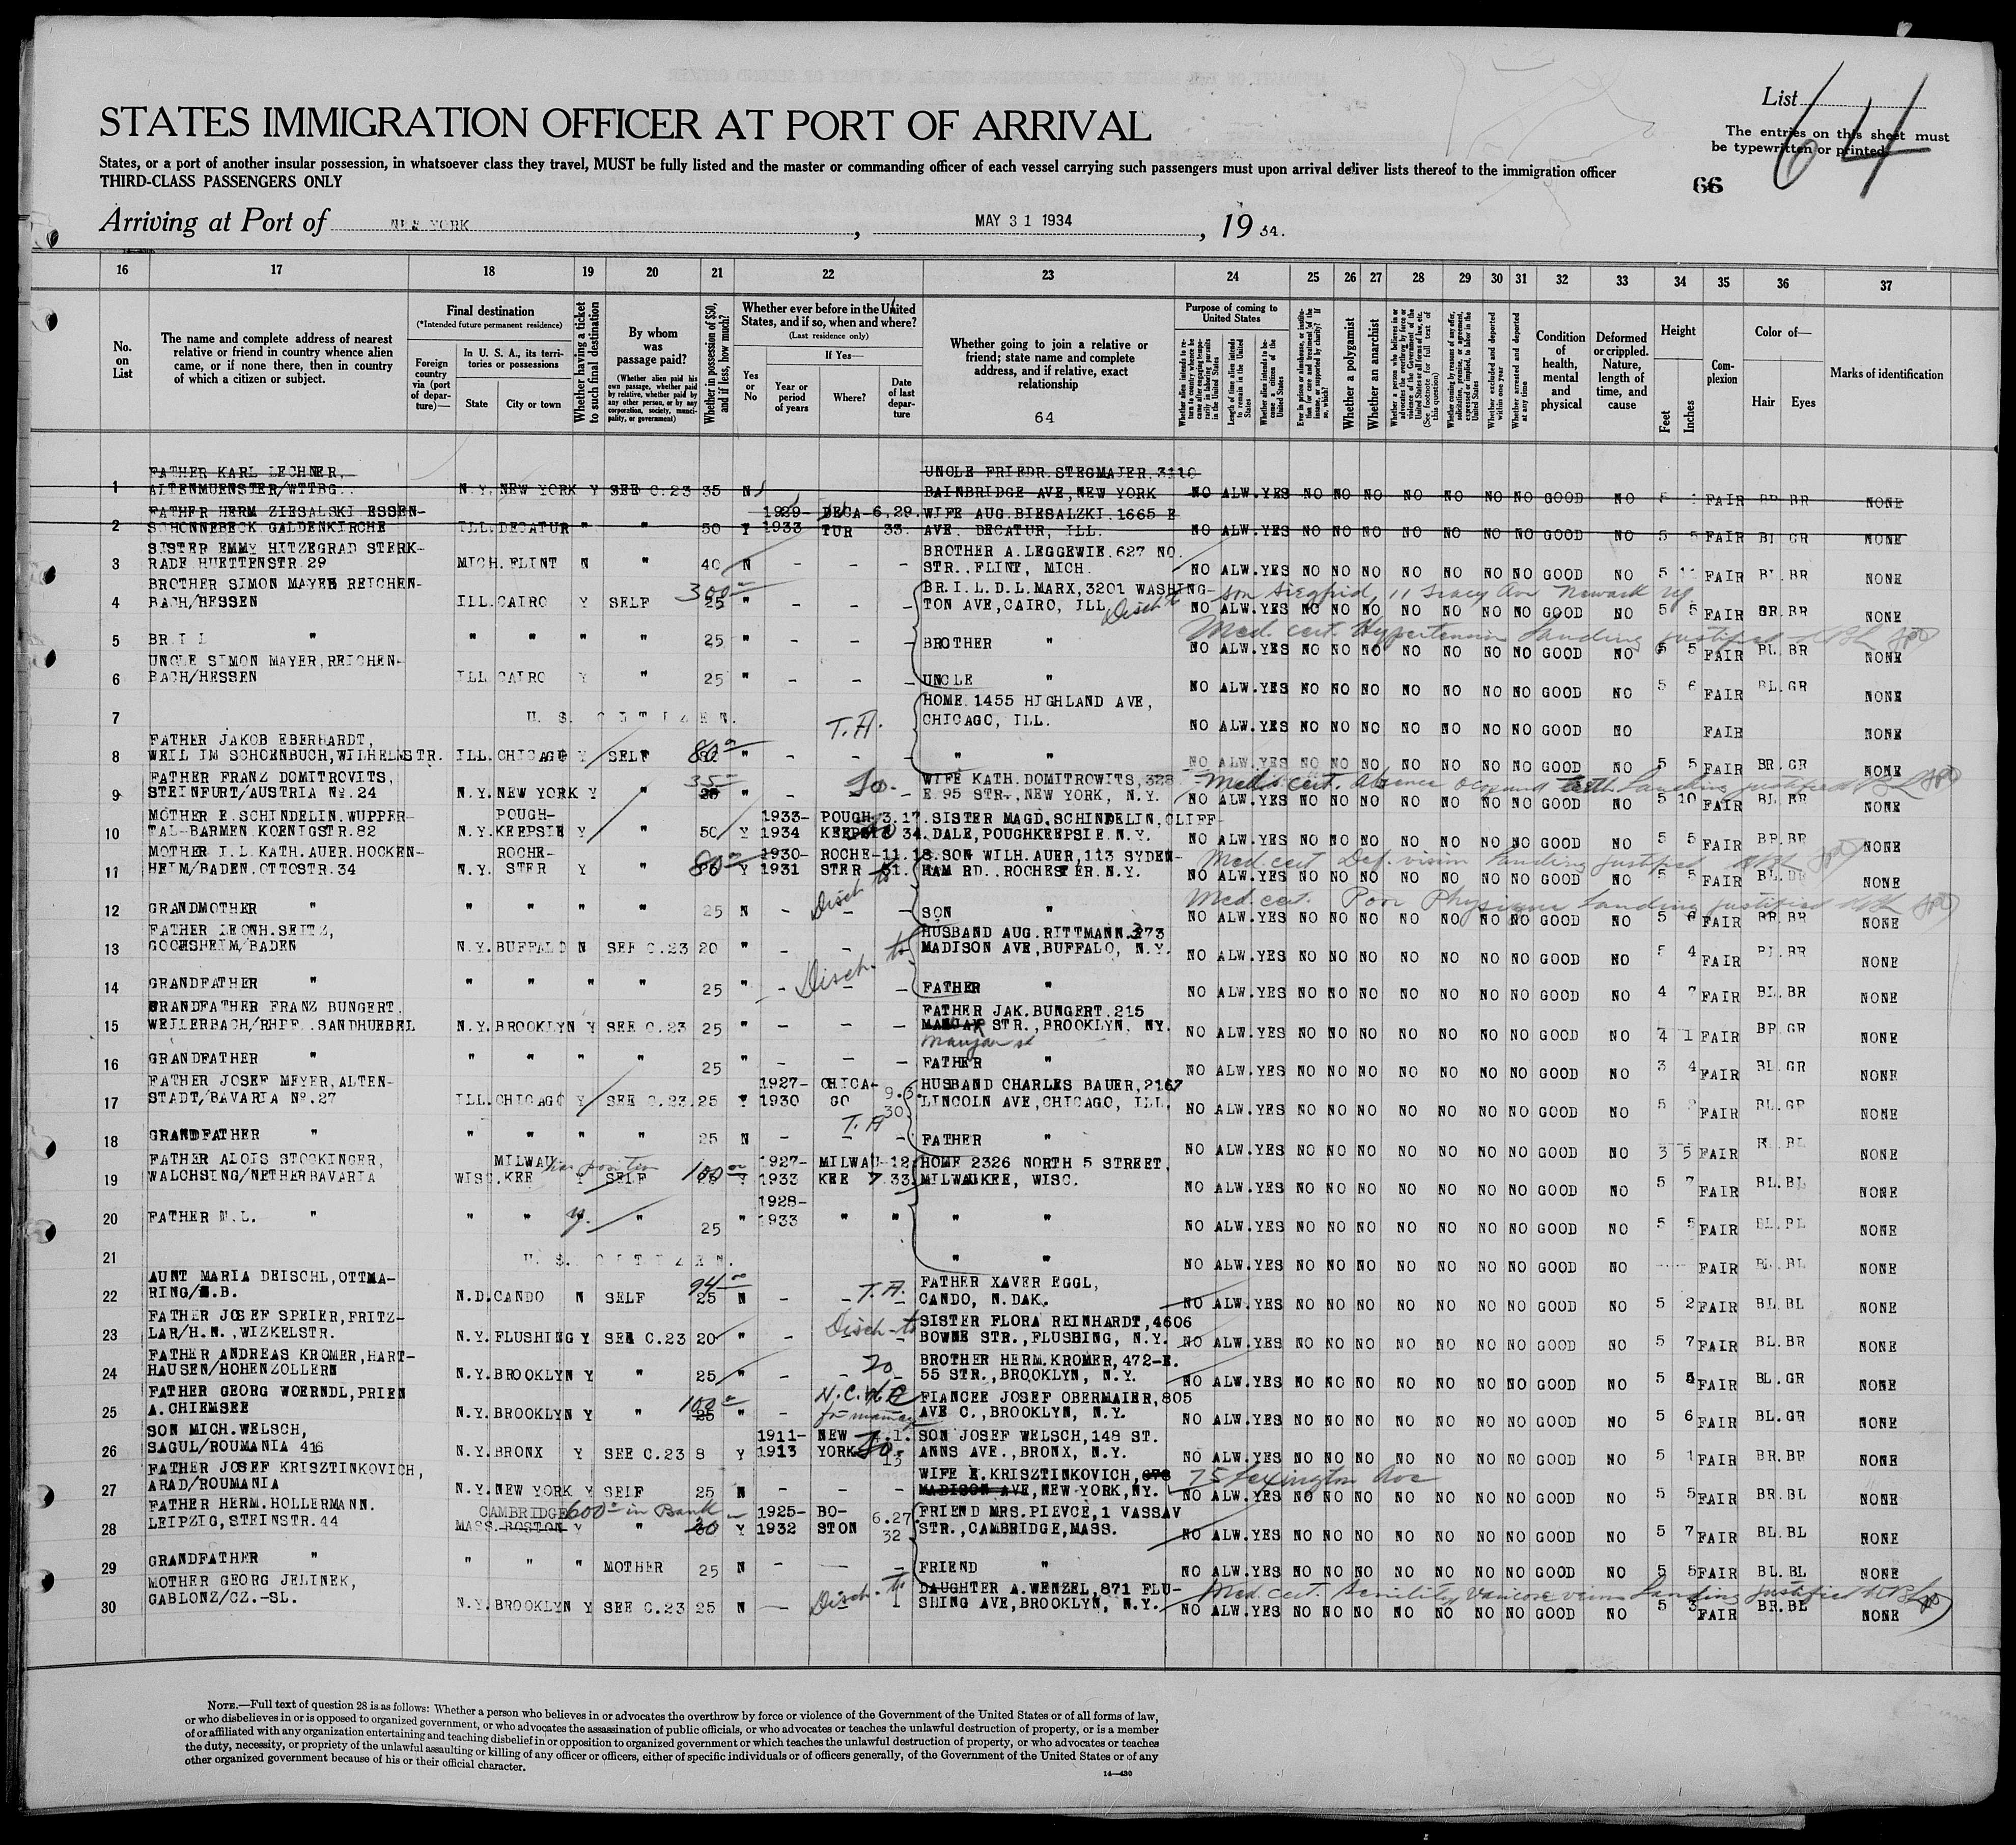 List 64
STATES IMMIGRATION OFFICER AT PORT OF ARRIVAL
The entries on this sheet must
be typewritten or printed.
States, or a port of another insular possession, in whatsoever class they travel, MUST be fully listed and the master or commanding officer of each vessel carrying such passengers must upon arrival deliver lists thereof to the immigration officer
THIRD-CLASS PASSENGERS ONLY
66
Arriving at Port of NEW YORK, MAY 31 1934, 19 34.
16 17 18 19 20 21 22 23 24 25 26 27 28 29 30 31 32 33 34 35 36 37
No. on List
The name and complete address of nearest relative or friend in country whence alien came, or if none there, then in country of which a citizen or subject.
Final destination
(*Intended future permanent residence)
Foreign country via (port of departure)—
In U. S. A., its territories or possessions
State City or town
Whether having a ticket to such final destination
By whom was passage paid?
(Whether alien paid his own passage, whether paid by relative, whether paid by any other person, or by any corporation, society, municipality, or government)
Whether in possession of $50, and if less, how much?
Whether ever before in the United States, and if so, when and where?
(Last residence only)
Yes or No
If Yes—
Year or period of years
Where?
Date of last departure
Whether going to join a relative or friend; state name and complete address, and if relative, exact relationship
64
Purpose of coming to United States
Length of time alien intends to remain in the United States
Whether alien intends to become a citizen of the United States
Whether a polygamist
Whether an anarchist
Whether excluded and deported within one year
Whether arrested and deported at any time
Condition of health, mental and physical
Deformed or crippled. Nature, length of time, and cause
Height
Feet Inches
Complexion
Color of—
Hair Eyes
Marks of identification
FATHER KARL LECHNER, UNCLE FRIEDR. STEGMAJER, 3110
1 ALTENMUENSTER/WTTBG.. N.Y. NEW YORK Y SEE C.23 35 N BAINBRIDGE AVE, NEW YORK NO ALW. YES NO NO NO NO NO NO NO GOOD NO 5 FAIR BR BR NONE
FATHER HERM ZIESALSKI ESSEN- 1929- DECA- 6.29. WIFE AUG. BIESALZKI. 1665 E
2 SCHONNEBECK GALDENKIRCHE ILL. DECATUR " " 50 Y 1933 TUR 33. AVE. DECATUR, ILL. NO ALW. YES NO NO NO NO NO NO NO GOOD NO 5 5 FAIR BL GR NONE
SISTER EMMY HITZEGRAD STERK- BROTHER A. LEGGEWIE. 627 NO.
3 RADE HUETTENSTR. 29 MICH. FLINT N " 40 N - - - STR.. FLINT, MICH. NO ALW. YES NO NO NO NO NO NO NO GOOD NO 5 FAIR BL. BR NONE
BROTHER SIMON MAYER REICHEN- 300 BR. I. L. D. L. MARX, 3201 WASHING- son Siegfried, 11 Tracy Ave Newark NJ
4 BACH/HESSEN ILL. CAIRO Y SELF 25 " - - - TON AVE, CAIRO, ILL. Disch to NO ALW. YES NO NO NO NO NO NO NO GOOD NO 5 5 FAIR BR. BR NONE
Med. cert. Hypertension landing justified
5 BR. I L " " " " " 25 " - - - BROTHER " NO ALW. YES NO NO NO NO NO NO NO GOOD NO 5 5 FAIR BL. BR NONE
UNCLE SIMON MAYER, REICHEN-
6 BACH/HESSEN ILL CAIRO Y " 25 " - - - UNCLE " NO ALW. YES NO NO NO NO NO NO NO GOOD NO 5 6 FAIR BL. GR NONE
HOME 1455 HIGHLAND AVE,
7 U. S. CITIZEN. T.A. CHICAGO, ILL. NO ALW. YES NO NO NO NO NO NO NO GOOD NO FAIR NONE
FATHER JAKOB EBERHARDT,
8 WEIL IM SCHOENBUCH, WILHELMSTR. ILL. CHICAGO Y SELF 80 " - - - " " NO ALW. YES NO NO NO NO NO NO NO GOOD NO 5 5 FAIR BR. GR NONE
FATHER FRANZ DOMITROVITS, 35 WIFE KATH. DOMITROWITS, 328 Med. cert. absence teeth landing justified
9 STEINFURT/AUSTRIA No. 24 N.Y. NEW YORK Y " - - E. 95 STR., NEW YORK, N.Y. NO ALW. YES NO NO NO NO NO NO NO GOOD NO 5 10 FAIR BL. BR NONE
MOTHER E. SCHINDELIN. WUPPER- POUGH- 1933- POUGH- 3.17. SISTER MAGD. SCHINDELIN, CLIFF-
10 TAL-BARMEN. KOENIGSTR. 82 N.Y. KEEPSIE Y " 50 Y 1934 KEEPSIE 34. DALE, POUGHKEEPSIE. N.Y. NO ALW. YES NO NO NO NO NO NO NO GOOD NO 5 5 FAIR BR. BR NONE
MOTHER I. L. KATH. AUER. HOCKEN- ROCHE- 1930- ROCHE- SON WILH. AUER, 113 SYDEN- Med. cert. Def. vision landing justified
11 HEIM/BADEN. OTTOSTR. 34 N.Y. STER Y " 80 Y 1931 STER 31. HAM RD.. ROCHESTER. N.Y. NO ALW. YES NO NO NO NO NO NO NO GOOD NO 5 5 FAIR BL. NONE
Disch to Med. cert. Poor Physique landing justified
12 GRANDMOTHER " " " " " 25 N - - - SON " NO ALW. YES NO NO NO NO NO NO NO GOOD NO 5 6 FAIR BR. BR NONE
FATHER LEONH. SEITZ, HUSBAND AUG. RITTMANN. 373
13 GOCHSHEIM/BADEN N.Y. BUFFALO N SEE C.23 20 " - - MADISON AVE, BUFFALO, N.Y. NO ALW. YES NO NO NO NO NO NO NO GOOD NO 5 4 FAIR BL. BR NONE
Disch. to
14 GRANDFATHER " " " " " 25 " - - - FATHER " NO ALW. YES NO NO NO NO NO NO NO GOOD NO 4 7 FAIR BL. BR NONE
GRANDFATHER FRANZ BUNGERT. FATHER JAK. BUNGERT. 215
15 WEILERBACH/RHPF.. SANDHUEBEL N.Y. BROOKLYN Y SEE C.23 25 " - - - STR., BROOKLYN, NY. NO ALW. YES NO NO NO NO NO NO NO GOOD NO 4 1 FAIR BR. GR NONE
Maujar st
16 GRANDFATHER " " " " " 25 " - - - FATHER " NO ALW. YES NO NO NO NO NO NO NO GOOD NO 3 4 FAIR BL. GR NONE
FATHER JOSEF MEYER, ALTEN- 1927- CHICA- 9.3. HUSBAND CHARLES BAUER, 2167
17 STADT/BAVARIA No. 27 ILL. CHICAGO Y SEE C.23. 25 Y 1930 GO 30 LINCOLN AVE, CHICAGO, ILL. NO ALW. YES NO NO NO NO NO NO NO GOOD NO 5 FAIR BL. GR NONE
T.A
18 GRANDFATHER " " " " " 25 N - - - FATHER " NO ALW. YES NO NO NO NO NO NO NO GOOD NO 3 5 FAIR BL. BL NONE
FATHER ALOIS STOCKINGER, MILWAU 1927- MILWAU- 12. HOME 2326 NORTH 5 STREET,
19 WALCHSING/NETHERBAVARIA WISC. KEE Y SELF 100 Y 1933 KEE 33. MILWAUKEE, WISC. NO ALW. YES NO NO NO NO NO NO NO GOOD NO 5 7 FAIR BL. BL NONE
1928-
20 FATHER I.L. " " " y. " 25 " 1933 " " " " NO ALW. YES NO NO NO NO NO NO NO GOOD NO 5 5 FAIR BL. BL NONE
21 U. S. CITIZEN. " " NO ALW. YES NO NO NO NO NO NO NO GOOD NO FAIR BL. BL NONE
AUNT MARIA DEISCHL, OTTMA- 94.00 FATHER XAVER EGGL,
22 RING/N.B. N.D. CANDO N SELF 25 N - T.A. CANDO, N. DAK. NO ALW. YES NO NO NO NO NO NO NO GOOD NO 5 2 FAIR BL. BL NONE
FATHER JOSEF SPEIER, FRITZ- Disch-to SISTER FLORA REINHARDT, 4606
23 LAR/H.N., WIZKELSTR. N.Y. FLUSHING Y SEE C.23 20 " - - - BOWNE STR., FLUSHING, N.Y. NO ALW. YES NO NO NO NO NO NO NO GOOD NO 5 7 FAIR BL. BR NONE
FATHER ANDREAS KROMER, HART- BROTHER HERM. KROMER, 472-E.
24 HAUSEN/HOHENZOLLERN N.Y. BROOKLYN Y " 25 " - - - 55 STR., BROOKLYN, N.Y. NO ALW. YES NO NO NO NO NO NO NO GOOD NO 5 FAIR BL. GR NONE
FATHER GEORG WOERNDL, PRIEN 100 FIANCEE JOSEF OBERMAIER, 805
25 A. CHIEMSEE N.Y. BROOKLYN Y " 25 " - AVE C., BROOKLYN, N.Y. NO ALW. YES NO NO NO NO NO NO NO GOOD NO 5 6 FAIR BL. GR NONE
SON MICH. WELSCH, 1911- NEW SON JOSEF WELSCH, 148 ST.
26 SAGUL/ROUMANIA 416 N.Y. BRONX Y SEE C.23 8 Y 1913 YORK 13 ANNS AVE., BRONX, N.Y. NO ALW. YES NO NO NO NO NO NO NO GOOD NO 5 1 FAIR BR. BR NONE
FATHER JOSEF KRISZTINKOVICH, WIFE E. KRISZTINKOVICH, 75 Lexington Ave
27 ARAD/ROUMANIA N.Y. NEW YORK Y SELF 25 N - - - MADISON AVE, NEW-YORK, NY. NO ALW. YES NO NO NO NO NO NO NO GOOD NO 5 5 FAIR BR. BL NONE
FATHER HERM. HOLLERMANN. CAMBRIDGE 600 in Bank 1925- BO- 6.27. FRIEND MRS. PIEVCE, 1 VASSAV
28 LEIPZIG, STEINSTR. 44 MASS. BOSTON Y " Y 1932 STON 32 STR., CAMBRIDGE, MASS. NO ALW. YES NO NO NO NO NO NO NO GOOD NO 5 7 FAIR BL. BL NONE
29 GRANDFATHER " " " " MOTHER 25 N - - - FRIEND " NO ALW. YES NO NO NO NO NO NO NO GOOD NO 5 5 FAIR BL. BL NONE
MOTHER GEORG JELINEK, Disch. to DAUGHTER A. WENZEL, 871 FLU- Med. cert. Senility varicose veins landing justified
30 GABLONZ/CZ.-SL. N.Y. BROOKLYN Y SEE C.23 25 N - - SHING AVE, BROOKLYN, N.Y. NO ALW. YES NO NO NO NO NO NO NO GOOD NO 5 3 FAIR BR. BL NONE
NOTE.—Full text of question 28 is as follows: Whether a person who believes in or advocates the overthrow by force or violence of the Government of the United States or of all forms of law,
or who disbelieves in or is opposed to organized government, or who advocates the assassination of public officials, or who advocates or teaches the unlawful destruction of property, or is a member
of or affiliated with any organization entertaining and teaching disbelief in or opposition to organized government or which teaches the unlawful destruction of property, or who advocates or teaches
the duty, necessity, or propriety of the unlawful assaulting or killing of any officer or officers, either of specific individuals or of officers generally, of the Government of the United States or of any
other organized government because of his or their official character.
14—430